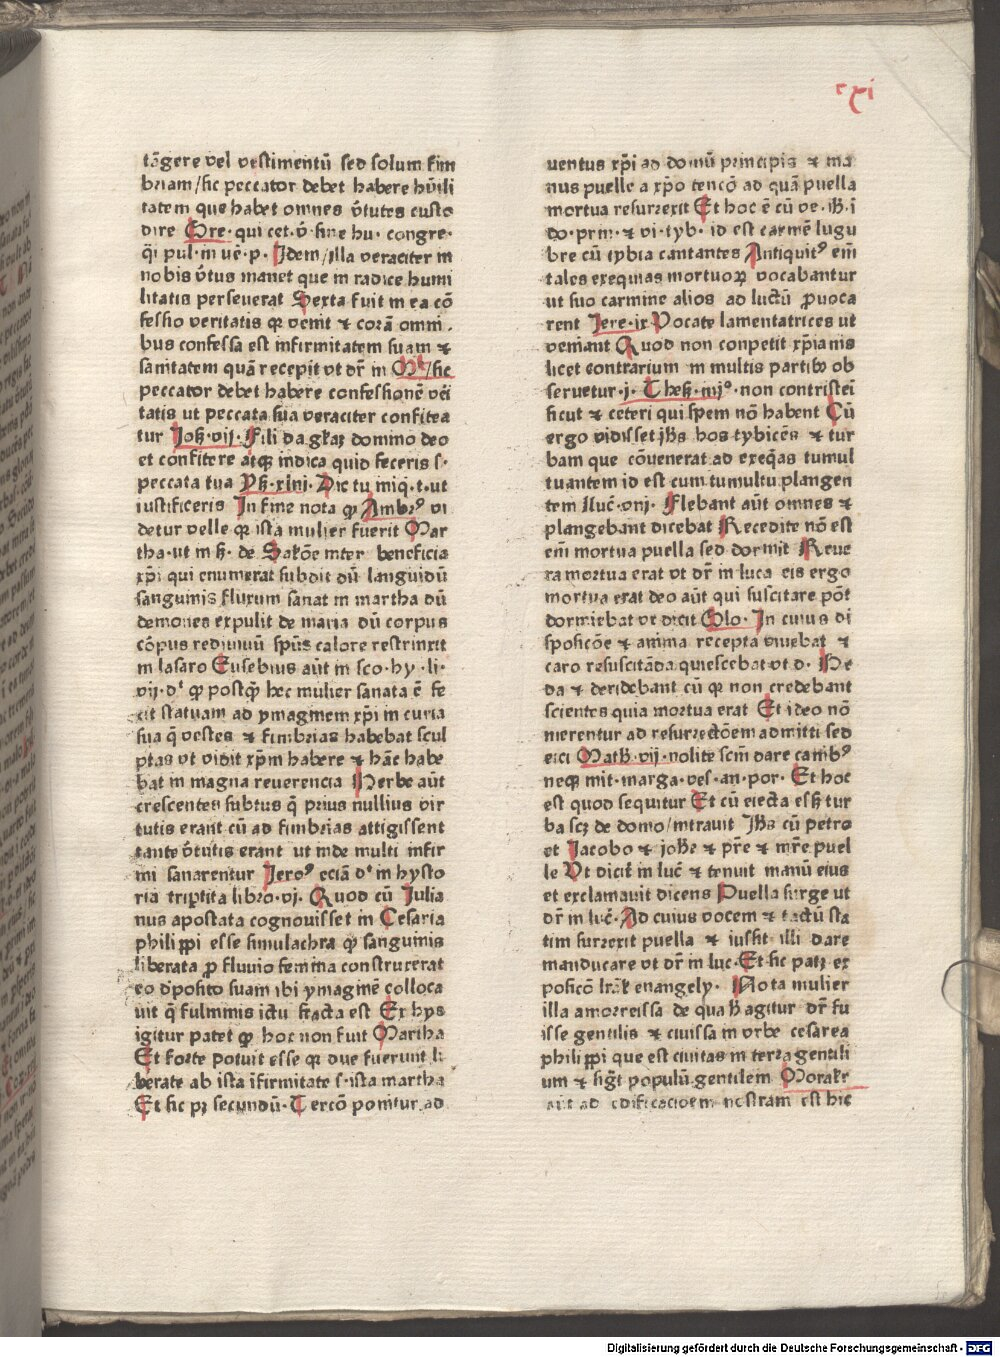 cxi
tãgere vel vestimentũ sed solum fim
briam/sic peccator debet habere hũili
tatem que habet omnes v̄tutes custo
dire Gre· qui cet·v̄·sine hu· congre·
q̄i pul·in uē·p· Idem/illa veraciter in
nobis v̄tus manet que in radice humi
litatis perseuerat Sexta fuit in ea cõ
fessio veritatis qꝛ venit ⁊ corã omni·
bus confessa est infirmitatem suam ⁊
sanitatem quã recepit vt dr̄ in /sic
peccator debet habere confessionē veī
tatis ut peccata sua veraciter confitea
tur Joħ·vij· Fili da glãꝫ domino deo
et confitere atqꝫ indica quid feceris s·
peccata tua ·xliij· Dic tu iniq̄·t·ut
iustificeris In fine nota ꝙ Ambr᷒ vi
detur velle qꝛ ista mulier fuerit Mar
tha·ut in de Salo͠e inter beneficia
xp̄i qui enumerat subdit dũ languidũ
sanguinis fluxum sanat in martha dũ
demones expulit de maria dũ corpus
cõpus rediuiuũ sp̄us calore restrinxit
in lasaro Eusebius aũt in sco·hy·li·
vij·d᷒ ꝙ postꝙ̄ hec mulier sanata ē fe
cit statuam ad ymaginem xp̄i in curia
sua q̄ vestes ⁊ fimbrias habebat scul
ptas ut vidit xp̄m habere ⁊ hãc habe
bat in magna reuerencia Herbe aũt
crescentes subtus q̄ prius nullius vir
tutis erant cũ ad fimbrias attigissent
tante v̄tutis erant ut inde multi infir
mi sanarentur Jero᷒ eciã d᷒ in hysto
ria triptita libro·vi· Quod cũ Julia
nus apostata cognouisset in Cesaria
philippi esse simulachra ꝙ sanguinis
liberata ꝓ fluuio femina construxerat
eo dp̄osito suam ibi ymaginē colloca
uit q̄ fulminis ictu fracta est Ex hys
igitur patet ꝙ hoc non fuit Martha
Et forte potuit esse qꝛ due fuerunt li
berate ab ista īfirmitate s·ista martha
Et sic pꝫ secundũ· Tercõ ponitur ad
uentus xp̄i ad domũ principis ⁊ ma
nus puelle a xp̄o tencõ ad quã puella
mortua resurrexit Et hoc ē cũ ve·iħ·ī
do·prin·⁊ vi·tyb· id est carmē lugu
bre cũ tybia cantantes Antiquit᷒ eīn
tales exequias mortuoꝝ vocabantur
ut suo carmine alios ad luctũ ꝓuoca
rent Jere·ix Vocate lamentatrices ut
veniant Quod non conpetit xp̄ianis
licet contrarium in multis partibꝫ ob
seruetur·j· Theſſ·iiij°·non contristeī
sicut ⁊ ceteri qui spem nõ habent Cũ
ergo vidisset iħs hos tybicēs ⁊ tur
bam que cõuenerat ad exeq̄as tumul
tuantem id est cum tumultu plangen
tem Luc̄·viij· Flebant aũt omnes ⁊
plangebant dicebat Recedite nõ est
eīn mortua puella sed dormit Reue
ra mortua erat vt dr̄ in luca eis ergo
mortua erat deo aũt qui suscitare põt
dormiebat vt dicit Glo· In cuius di
sposicõe ⁊ anima recepta viuebat ⁊
caro resuscitãda quiescebat vt d· Be
da ⁊ deridebant cũ qꝛ non credebant
scientes quia mortua erat Et ideo nõ
merentur ad resurrectõem admitti sed
eici Math·vij·nolite scm̄ dare canibꝫ
neqꝫ mit·marga·ves·an·por· Et hoc
est quod sequitur Et cũ eiecta esset tur
ba scꝫ de domo/intrauit Jħs cũ petro
et Jacobo ⁊ joħe ⁊ pr̄e ⁊ mr̄e puel
le Vt dicit in luc̄ ⁊ tenuit manũ eius
et exclamauit dicens Puella surge ut
dr̄ in luc̄· Ad cuius vocem ⁊ tactũ sta
tim surrexit puella ⁊ iussit illi dare
manducare vt dr̄ in luc·Et sic patꝫ ex
posicõ lr̄alis euangely· Nota mulier
illa amorreissa de qua hagitur dr̄ fu
isse gentilis ⁊ ciuissa in vrbe cesarea
philippi que est ciuitas in terra gentili
um ⁊ sigt̄ populũ gentilem Moralr̄
aũt ad edificacioem nostram est hic
Digitalisierung gefördert durch die Deutsche Forschungsgemeinschaft - DFG